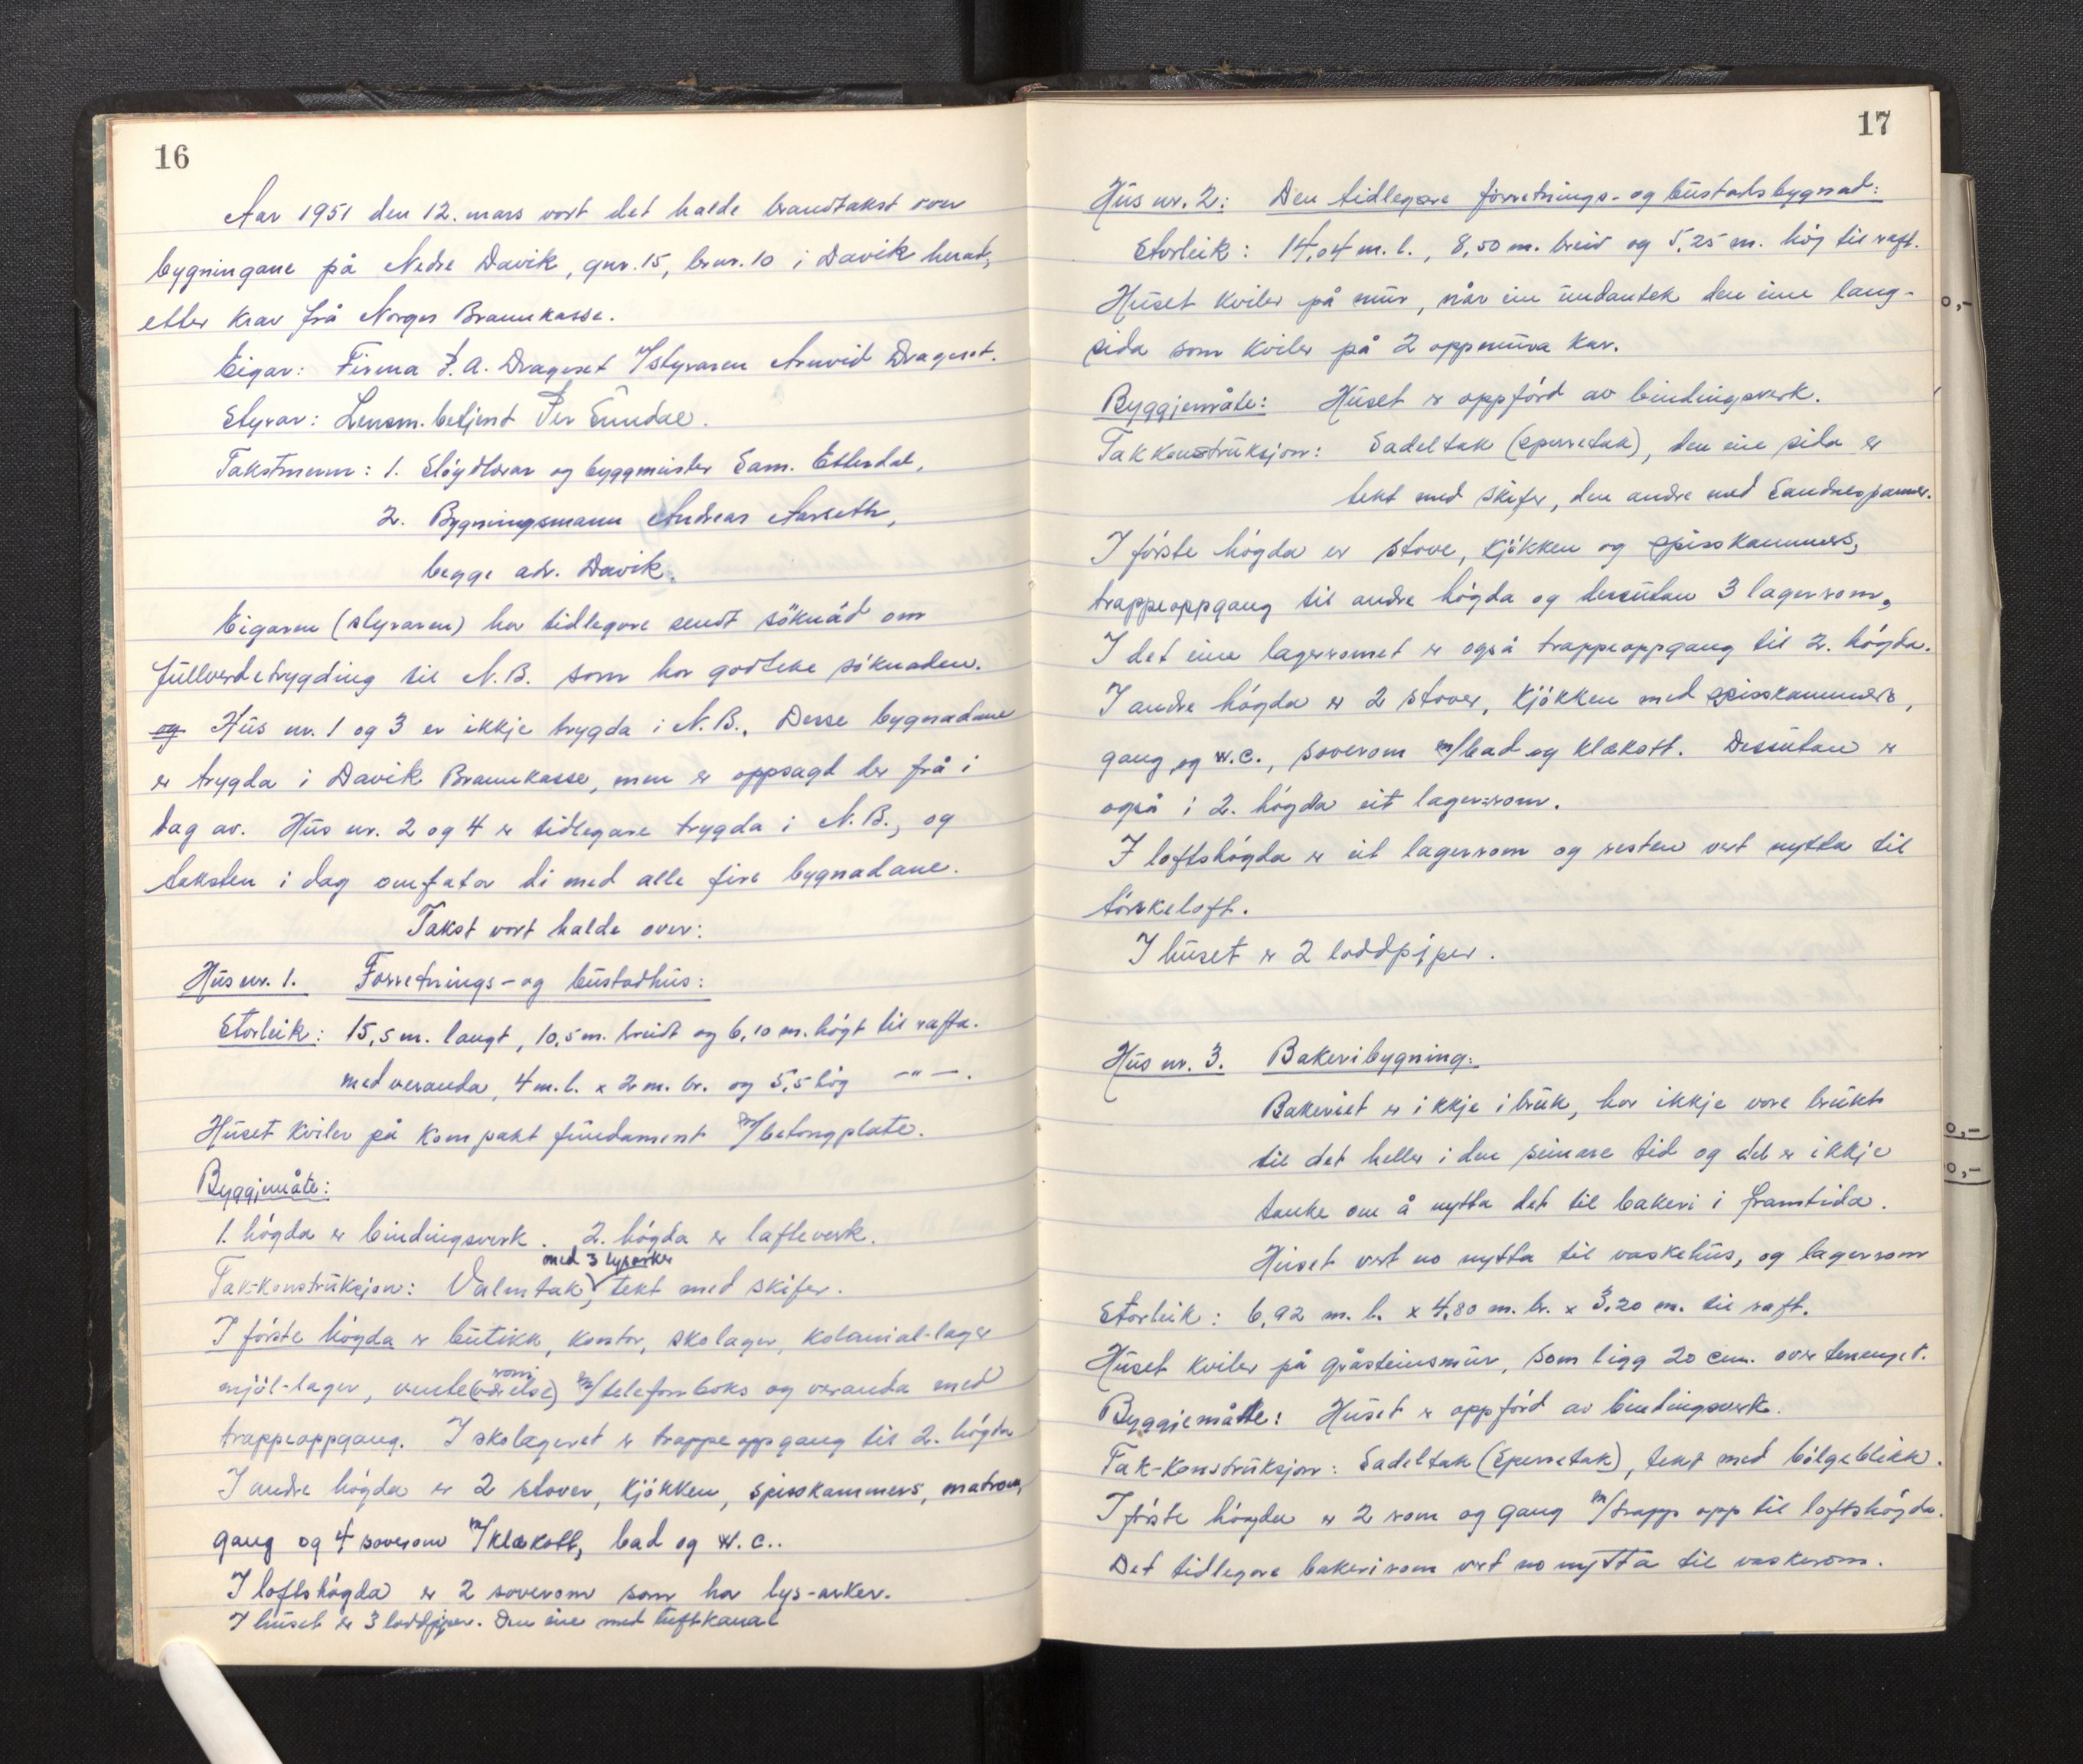 16
Aar 1951 den 12. mars vart det halde branntakst over
bygningane på Nedre Davik, gnr. 15, brnr. 10 i Davik herad,
etter krav frå Norges Brannkasse.
Eigar: Firma F. A. Drageset v/styraren Arnvid Drageset.
Styrar: Lensm. betjent Per Sundal.
Takstmenn: 1. Sløydlærar og byggmeister Sam. Endal,
2. Bygningsmann Andreas Aarseth,
begge adr. Davik.
Eigaren (styraren) har tidlegare sendt söknad om
fullverdetrygding til N.B. som har godteke söknaden.
og Hus nr. 1 og 3 er ikkje trygda i N.B., Desse bygnadane
er trygda i Davik Brannkasse, men er oppsagt der frå i
dag av. Hus nr. 2 og 4 er tidlegare trygda i N.B., og
taksten i dag omfatar di med alle fire bygnadane.
Takst vart halde over:
Hus nr. 1. Forretnings- og bustadhus:
Storleik: 15,5 m. langt, 10,5 m. breidt og 6,10 m. högt til rafta.
med veranda, 4 m. l. x 2 m. br. og 5,5 hög —"—.
Huset kviler på kompakt fundament m/betongplate.
Byggjemåte:
1. högda er bindingsverk. 2. högda er lafteverk.
med 3 lysarker
Tak-konstruksjon: Valmtak, tekt med skifer.
I förste högda er butikk, kontor, skolager, kolonial-lager
rom
mjöl-lager, vente(værelse) m/telefonboks og veranda med
trappeoppgang. I skolageret er trappeoppgang til 2. högda
I andre högda er 2 stover, kjökken, spisskammers, matrom,
gang og 4 soverom m/klekott, bad og w.c..
I loftshögda er 2 soverom som har lys-arker.
I huset er 3 loddpiper. Den eine med luftkanal
17
Hus nr. 2: Den tidlegare forretnings- og bustadsbygnad:
Storleik: 14,04 m. l., 8,50 m. breid og 5,25 m. hög til raft.
Huset kviler på mur, når ein undantek den eine lang-
sida som kviler på 2 oppmura kar.
Byggjemåte: Huset er oppförd av bindingsverk.
Takkonstruksjon: Sadeltak (sperretak), den eine sida er
tekt med skifer, den andre med Sandnespanner.
I förste högda er stove, kjökken og spisskammers,
trappeoppgang til andre högda og dessutan 3 lagerrom,
I det eine lagerromet er også trappeoppgang til 2. högda.
I andre högda er 2 stover, kjökken med spisskammers,
gang og w.c., soverom m/bad og klekott. Dessutan er
også i 2. högda eit lager=rom.
I loftshögda er eit lagerrom og resten vert nytta til
törrkeloft.
I huset er 2 loddpiper.
Hus nr. 3. Bakeribygning:
Bakeriet er ikkje i bruk, har ikkje vore brukt
til det heller i den seinare tid og det er ikkje
tanke om å nytta det til bakeri i framtida.
Huset vert no nytta til vaskehus, og lagerrom
Storleik: 6,92 m. l. x 4,80 m. br. x 3,20 m. til raft.
Huset kviler på gråsteinsmur, som ligg 20 cm. over terrenget.
Byggjemåte: Huset er oppförd av bindingsverk.
Tak-konstruksjon: Sadeltak (Sperretak), tekt med bölgeblikk.
I förste högda er 2 rom og gang m/trapp opp til loftshögda.
Det tidlegare bakerirom vert no nytta til vaskerom.
0,-
0,-
0,-